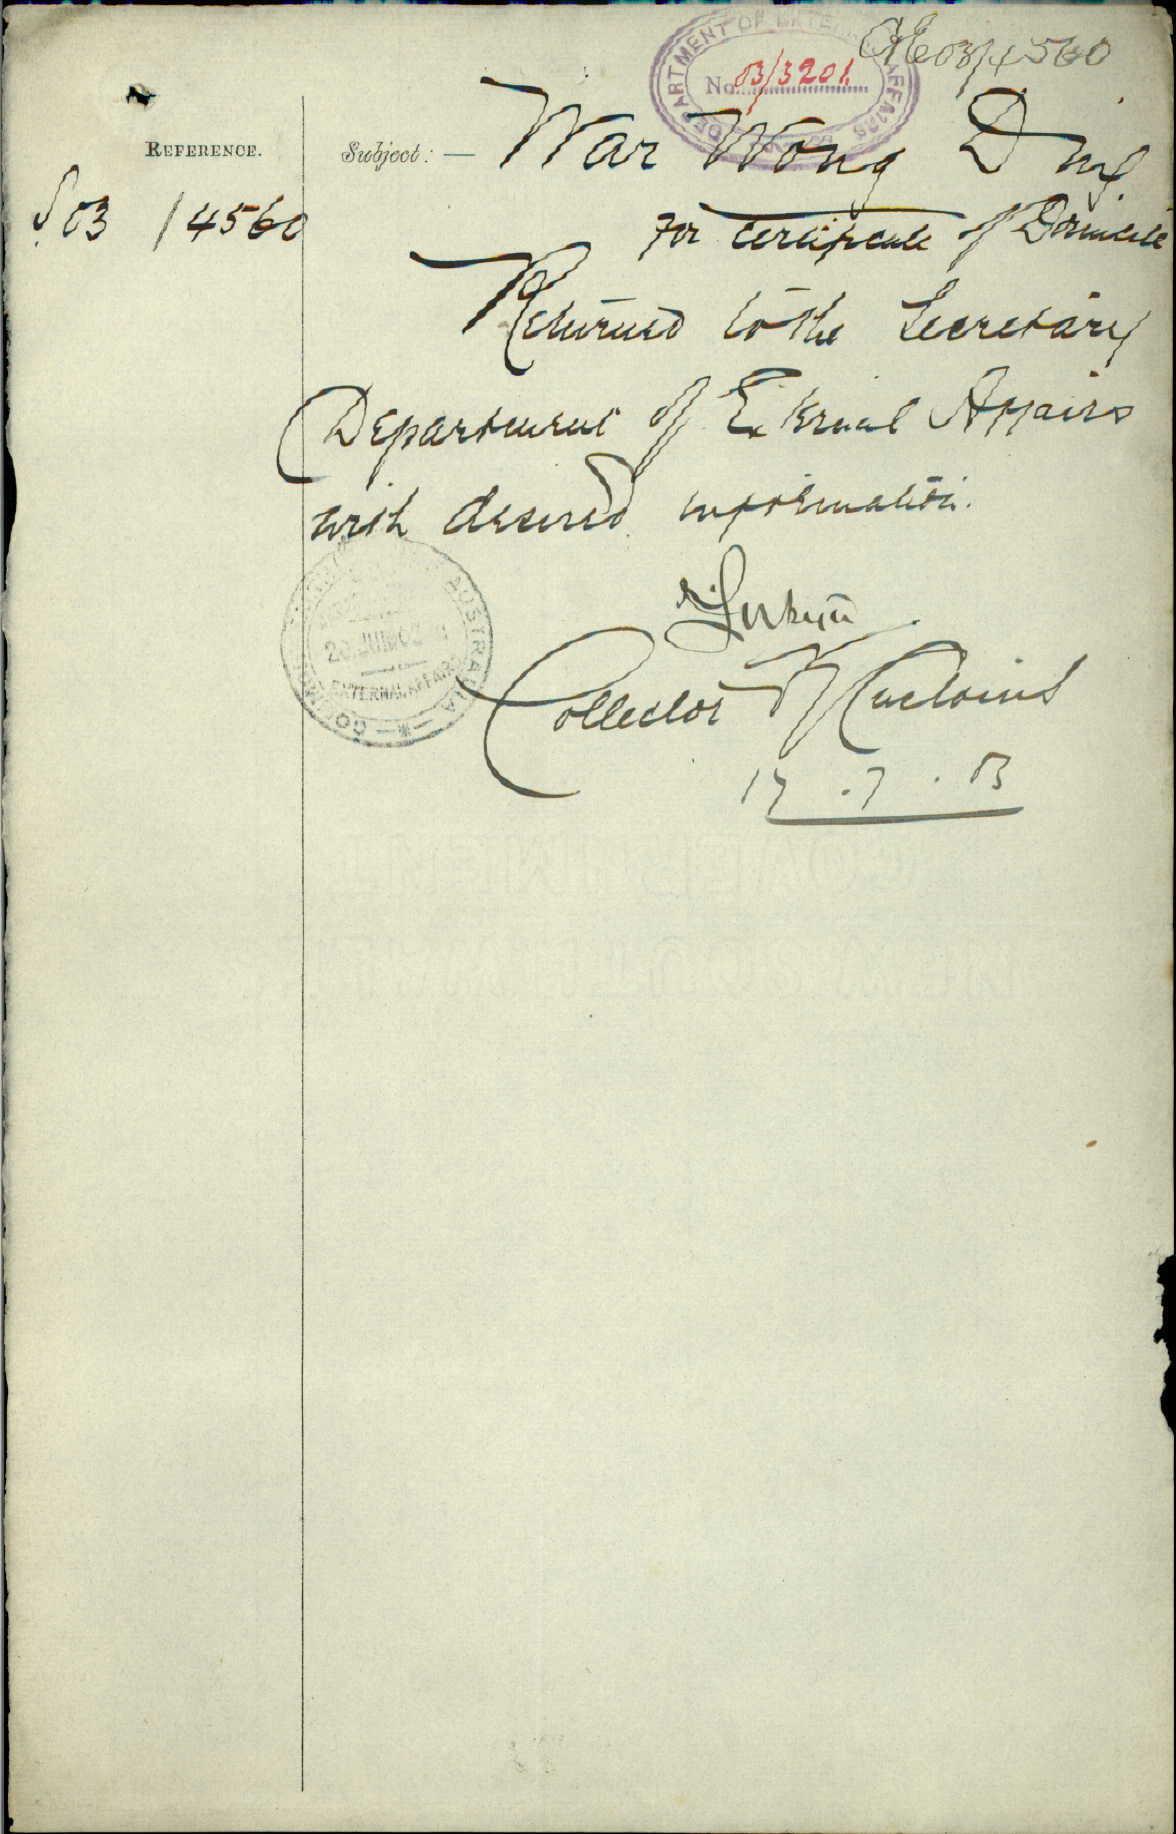 DEPARTMENT OF EXTERNAL AFFAIRS
No. 03/3201
03/4560
REFERENCE.
Subject: — War Wong Duif
S 03 / 4560
for Certificate of Domicile
Returned to the Secretary
Department of External Affairs
with desired information.
AUSTRALIA
EXTERNAL AFFAIRS
Collector of Customs
17.7.03